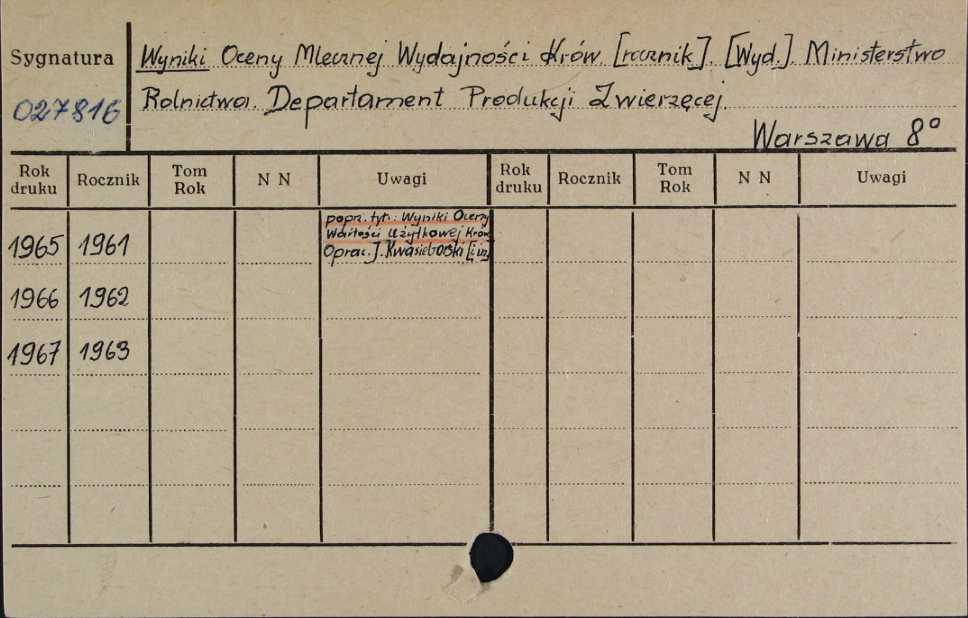 Sygnatura
027816
Wyniki Oceny Mlecznej Wydajności Krów [rocznik]. [Wyd.]. Ministerstwo
Rolnictwa. Departament Produkcji Zwierzęcej.
Warszawa 8°
Rok druku Rocznik Tom Rok N N Uwagi Rok druku Rocznik Tom Rok N N Uwagi
1965 1961
popz. tyt.: Wyniki Oceny
Wartości Użytkowej Krów
Oprac. J. Kwasieborski [i in.]
1966 1962
1967 1963